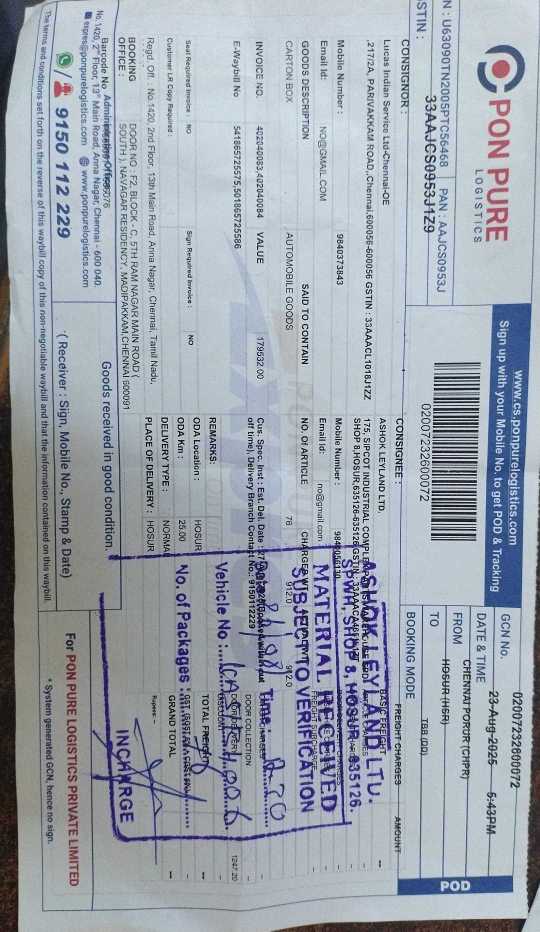 PON PURE
LOGISTICS
www.cs.ponpurelogistics.com
Sign up with your Mobile No. to get POD & Tracking
N : U63090TN2005PTC56468 | PAN : AAJCS0953J
STIN : 33AAJCS0953J1Z9
02007232600072
GCN No. 02007232600072
DATE & TIME 23-Aug-2025 5:43PM
FROM CHENNAI PORUR (CHPR)
TO HOSUR (HSR)
BOOKING MODE TBB (DD)
POD
CONSIGNOR :
Lucas Indian Service Ltd-Chennai-OE
,217/2A, PARIVAKKAM ROAD,,Chennai,600056-600056 GSTIN : 33AAACL1018J1ZZ
Mobile Number : 9840373843
Email Id: NO@GMAIL.COM
CONSIGNEE :
ASHOK LEYLAND LTD.
175, SIPCOT INDUSTRIAL
SHOP 8,HOSUR,635126-635126
Mobile Number :
Email Id: no@gmail.com
FREIGHT CHARGES AMOUNT
BASIC FREIGHT --
GOODS DESCRIPTION SAID TO CONTAIN NO. OF ARTICLE
CARTON BOX AUTOMOBILE GOODS 76 912.0 912.0
INVOICE NO. 402040083,402040084 VALUE 179532.00
E-Waybill No 541865725575,501865725586
Cus. Spec. Inst : Est. Del. Date :
of time), Delivery Branch Contact No.: 9150112229
DOOR COLLECTION
DOOR DELIVERY 1247.20
TOTAL FREIGHT
GRAND TOTAL --
Seal Required Invoice : NO Sign Required Invoice : NO
Customer LR Copy Required :
REMARKS:
ODA Location : HOSUR
ODA Km : 25.00
DELIVERY TYPE : NORMAL
PLACE OF DELIVERY : HOSUR
Regd. Off. : No.1420, 2nd Floor, 13th Main Road, Anna Nagar, Chennai, Tamil Nadu,
BOOKING OFFICE : DOOR NO : F2, BLOCK - C, 5TH RAM NAGAR MAIN ROAD(
SOUTH ), NAVAGAR RESIDENCY, MADIPAKKAM,CHENNAI, 600091
ASHOK LEYLAND LTD.
SPWH, SHOP 8, HOSUR - 635126.
MATERIAL RECEIVED
SUBJECT TO VERIFICATION
Time :
Vehicle No :
No. of Packages :
INCHARGE
Barcode No
Administrative Office
No.1420, 2nd Floor, 13th Main Road, Anna Nagar, Chennai - 600 040.
espres@ponpurelogistics.com www.ponpurelogistics.com
9150 112 229
Goods received in good condition.
( Receiver : Sign, Mobile No., Stamp & Date)
Rupees :
For PON PURE LOGISTICS PRIVATE LIMITED
* System generated GCN, hence no sign.
The terms and conditions set forth on the reverse of this waybill copy of this non-negotiable waybill and that the information contained on this waybill.